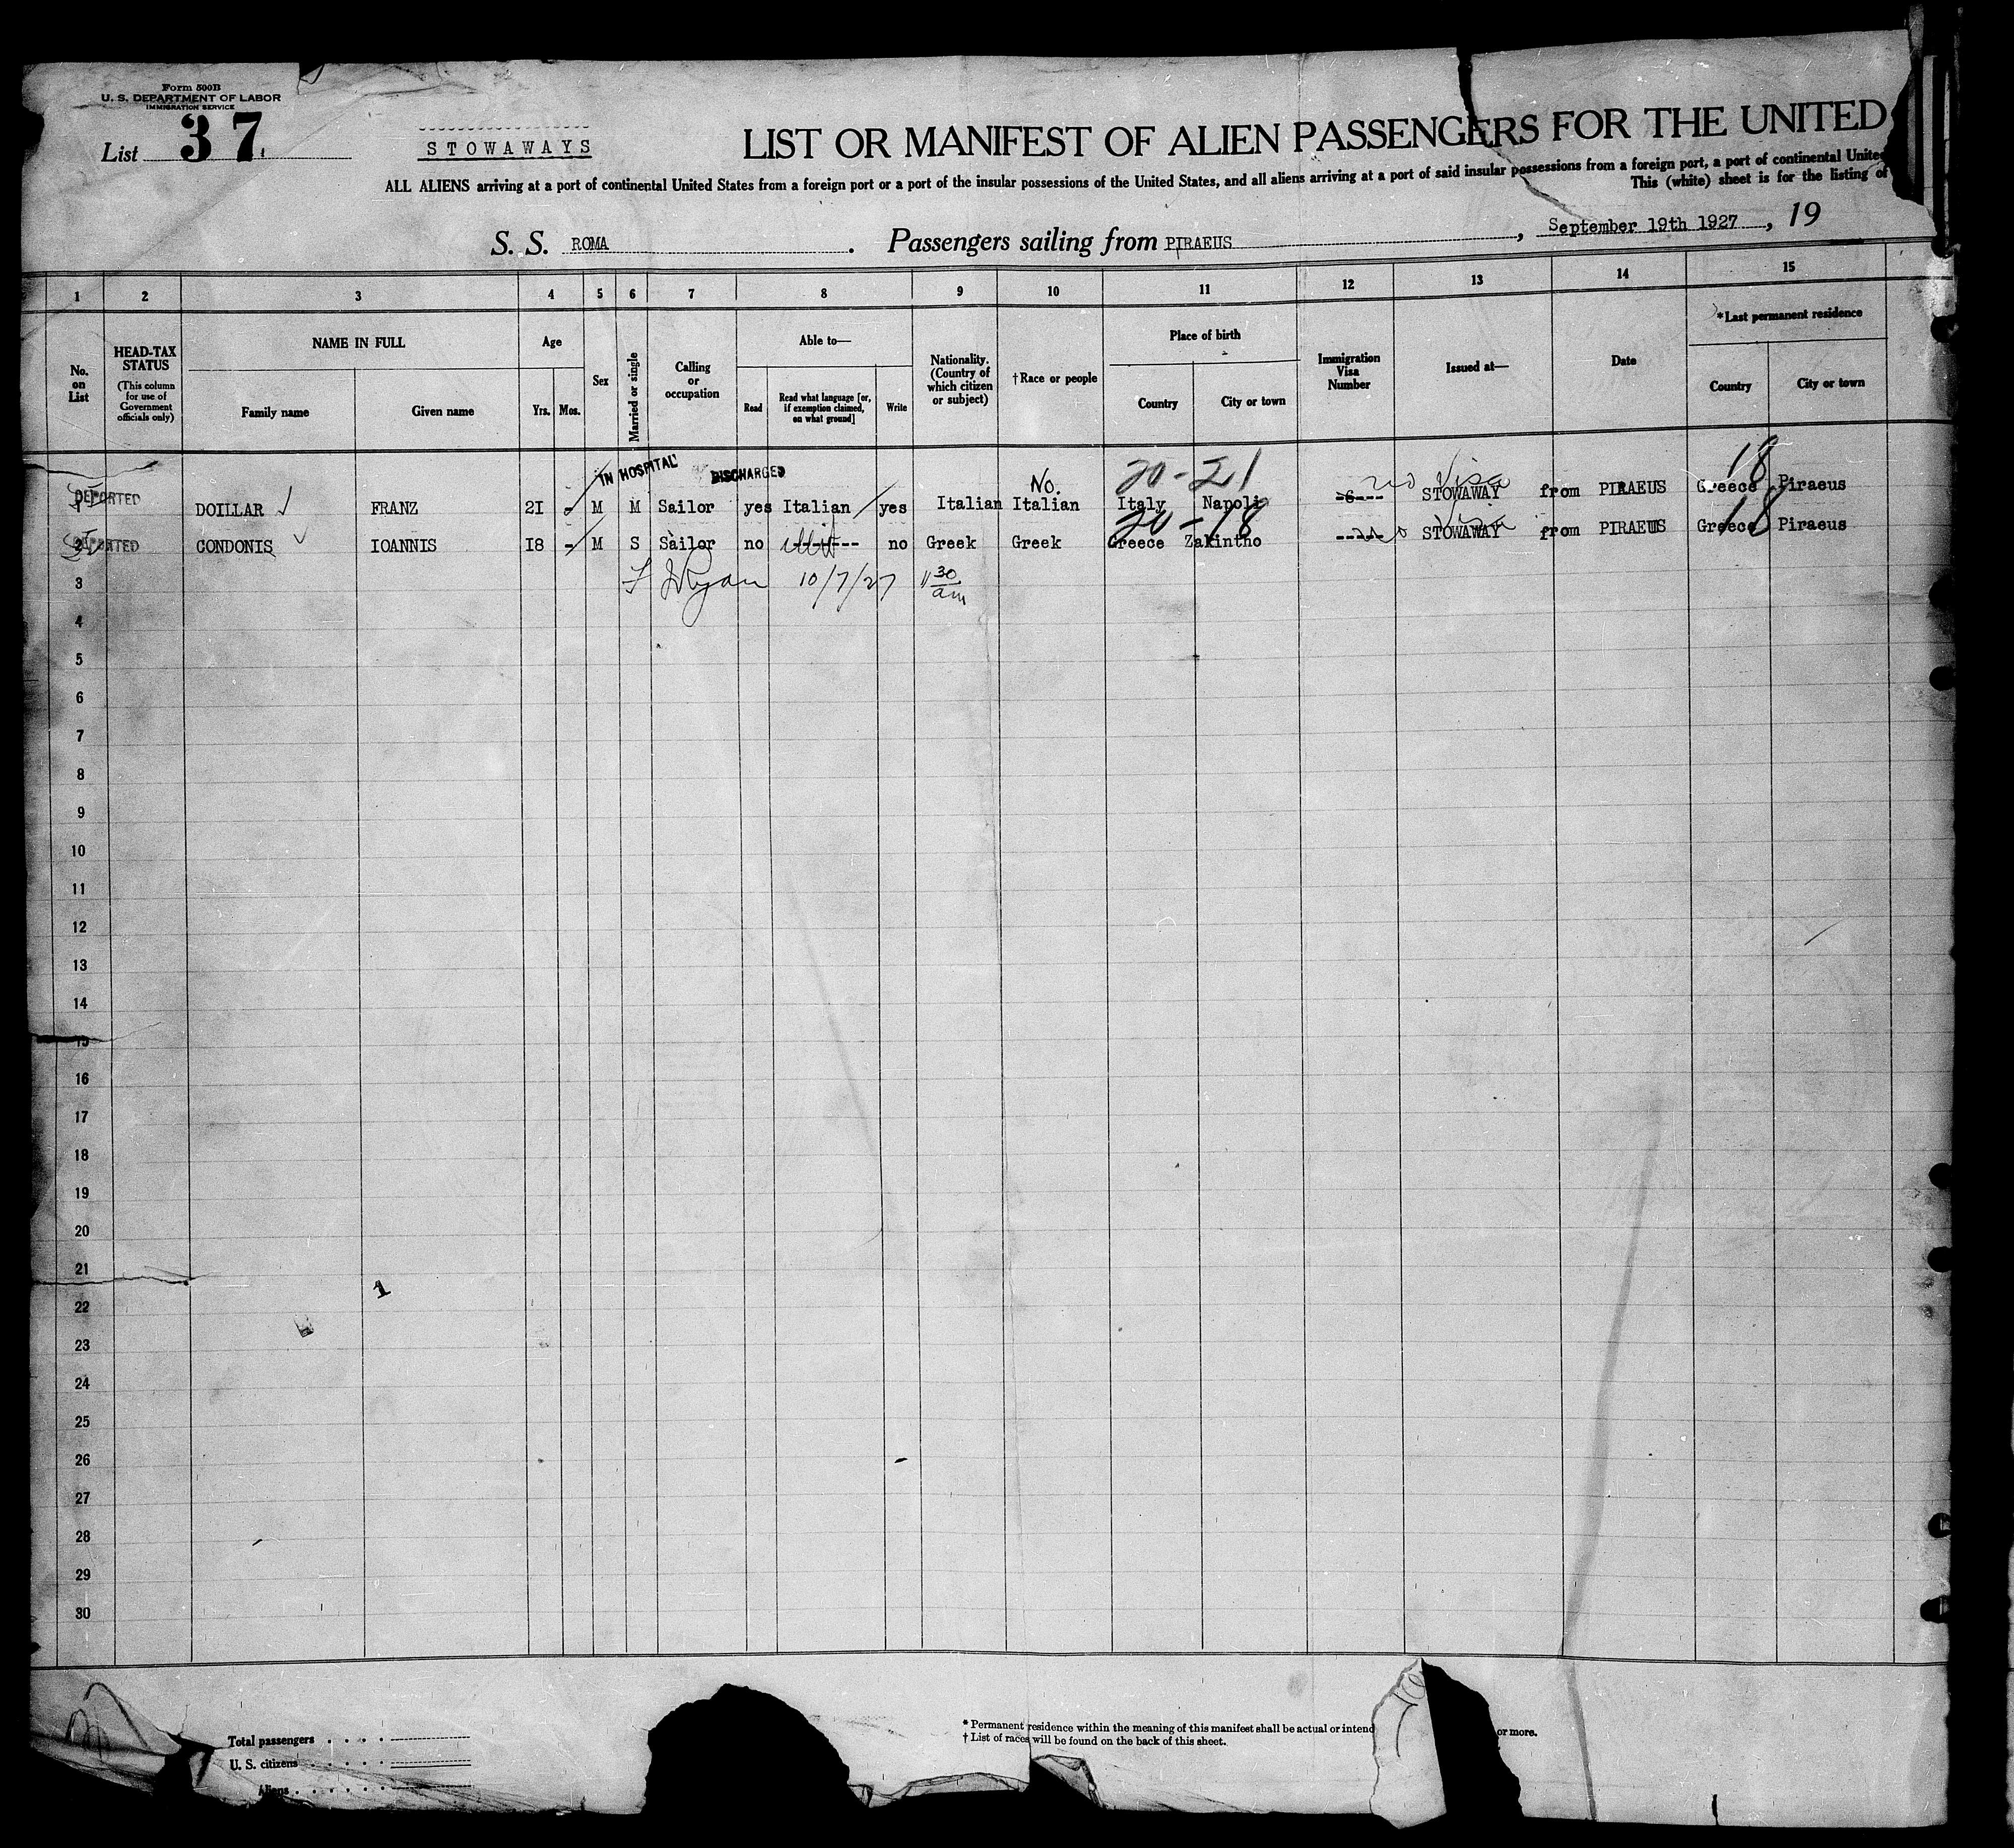 Form 500B
U. S. DEPARTMENT OF LABOR
IMMIGRATION SERVICE
List 37
STOWAWAYS
LIST OR MANIFEST OF ALIEN PASSENGERS FOR THE UNITED
ALL ALIENS arriving at a port of continental United States from a foreign port or a port of the insular possessions of the United States, and all aliens arriving at a port of said insular possessions from a foreign port, a port of continental United
This (white) sheet is for the listing of
S. S. ROMA. Passengers sailing from PIRAEUS, September 19th 1927, 19
1 2 3 4 5 6 7 8 9 10 11 12 13 14 15
No. on List
HEAD-TAX STATUS
(This column for use of Government officials only)
NAME IN FULL
Family name
Given name
Age
Yrs. Mos.
Sex
Married or single
Calling or occupation
Able to—
Read
Read what language [or, if exemption claimed, on what ground]
Write
Nationality. (Country of which citizen or subject)
†Race or people
Place of birth
Country
City or town
Immigration Visa Number
Issued at—
Date
*Last permanent residence
Country
City or town
IN HOSPITAL DISCHARGED No. 20-21 no Visa 18
DEPORTED DOILLAR FRANZ 21 M M Sailor yes Italian yes Italian Italian Italy Napoli STOWAWAY from PIRAEUS Greece Piraeus
20-18 no Visa 18
2 DEPORTED CONDONIS IOANNIS 18 - M S Sailor no ------- no Greek Greek Greece Zakintho ----- STOWAWAY from PIRAEUS Greece Piraeus
3 Ryan 10/7/27 11 30 am
4
5
6
7
8
9
10
11
12
13
14
15
16
17
18
19
20
21
1
22
23
24
25
26
27
28
29
30
Total passengers
U. S. citizens
Aliens
* Permanent residence within the meaning of this manifest shall be actual or intend or more.
† List of races will be found on the back of this sheet.